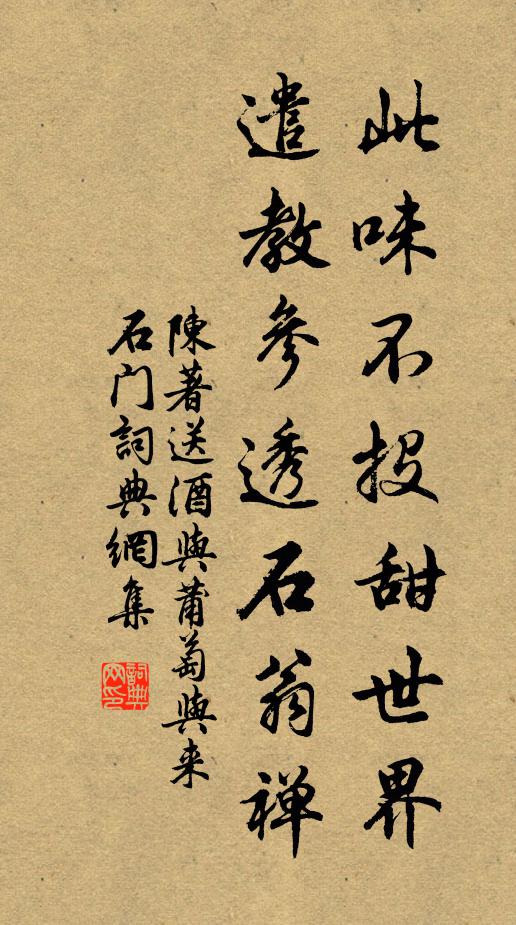 此味不投甜世界
遣教參透石翁禅
陳著送酒與莆萄與来
石门詞典網集
詞典网印